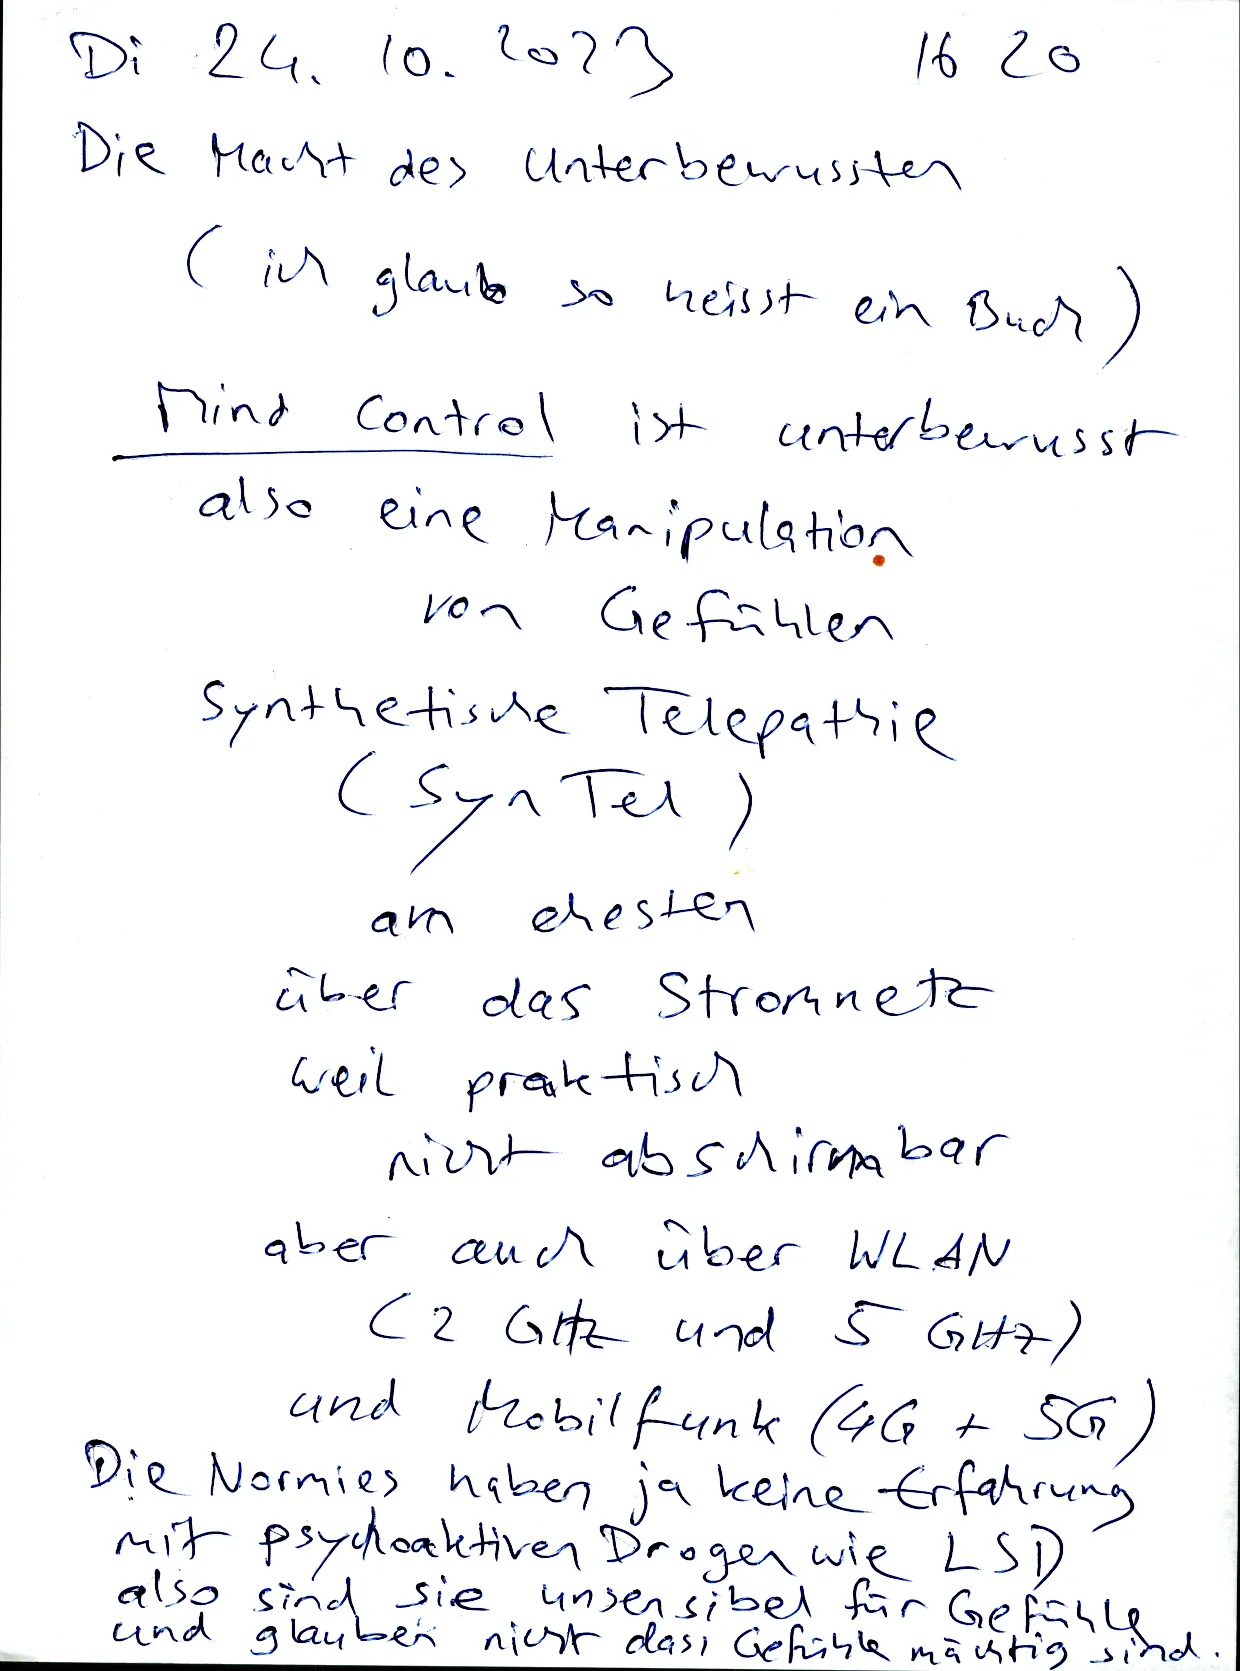 Di 24. 10. 2023 16 20
Die Macht des Unterbewussten
( ich glaub so heisst ein Buch )
Mind Control ist unterbewusst
also eine Manipulation
von Gefühlen
Synthetische Telepathie
( SynTel )
am ehesten
über das Stromnetz
weil praktisch
nicht abschirmbar
aber auch über WLAN
(2 GHz und 5 GHz)
und Mobilfunk (4G + 5G)
Die Normies haben ja keine Erfahrung
mit psychoaktiven Drogen wie LSD
also sind sie unsensibel für Gefühle
und glauben nicht dass Gefühle mächtig sind.